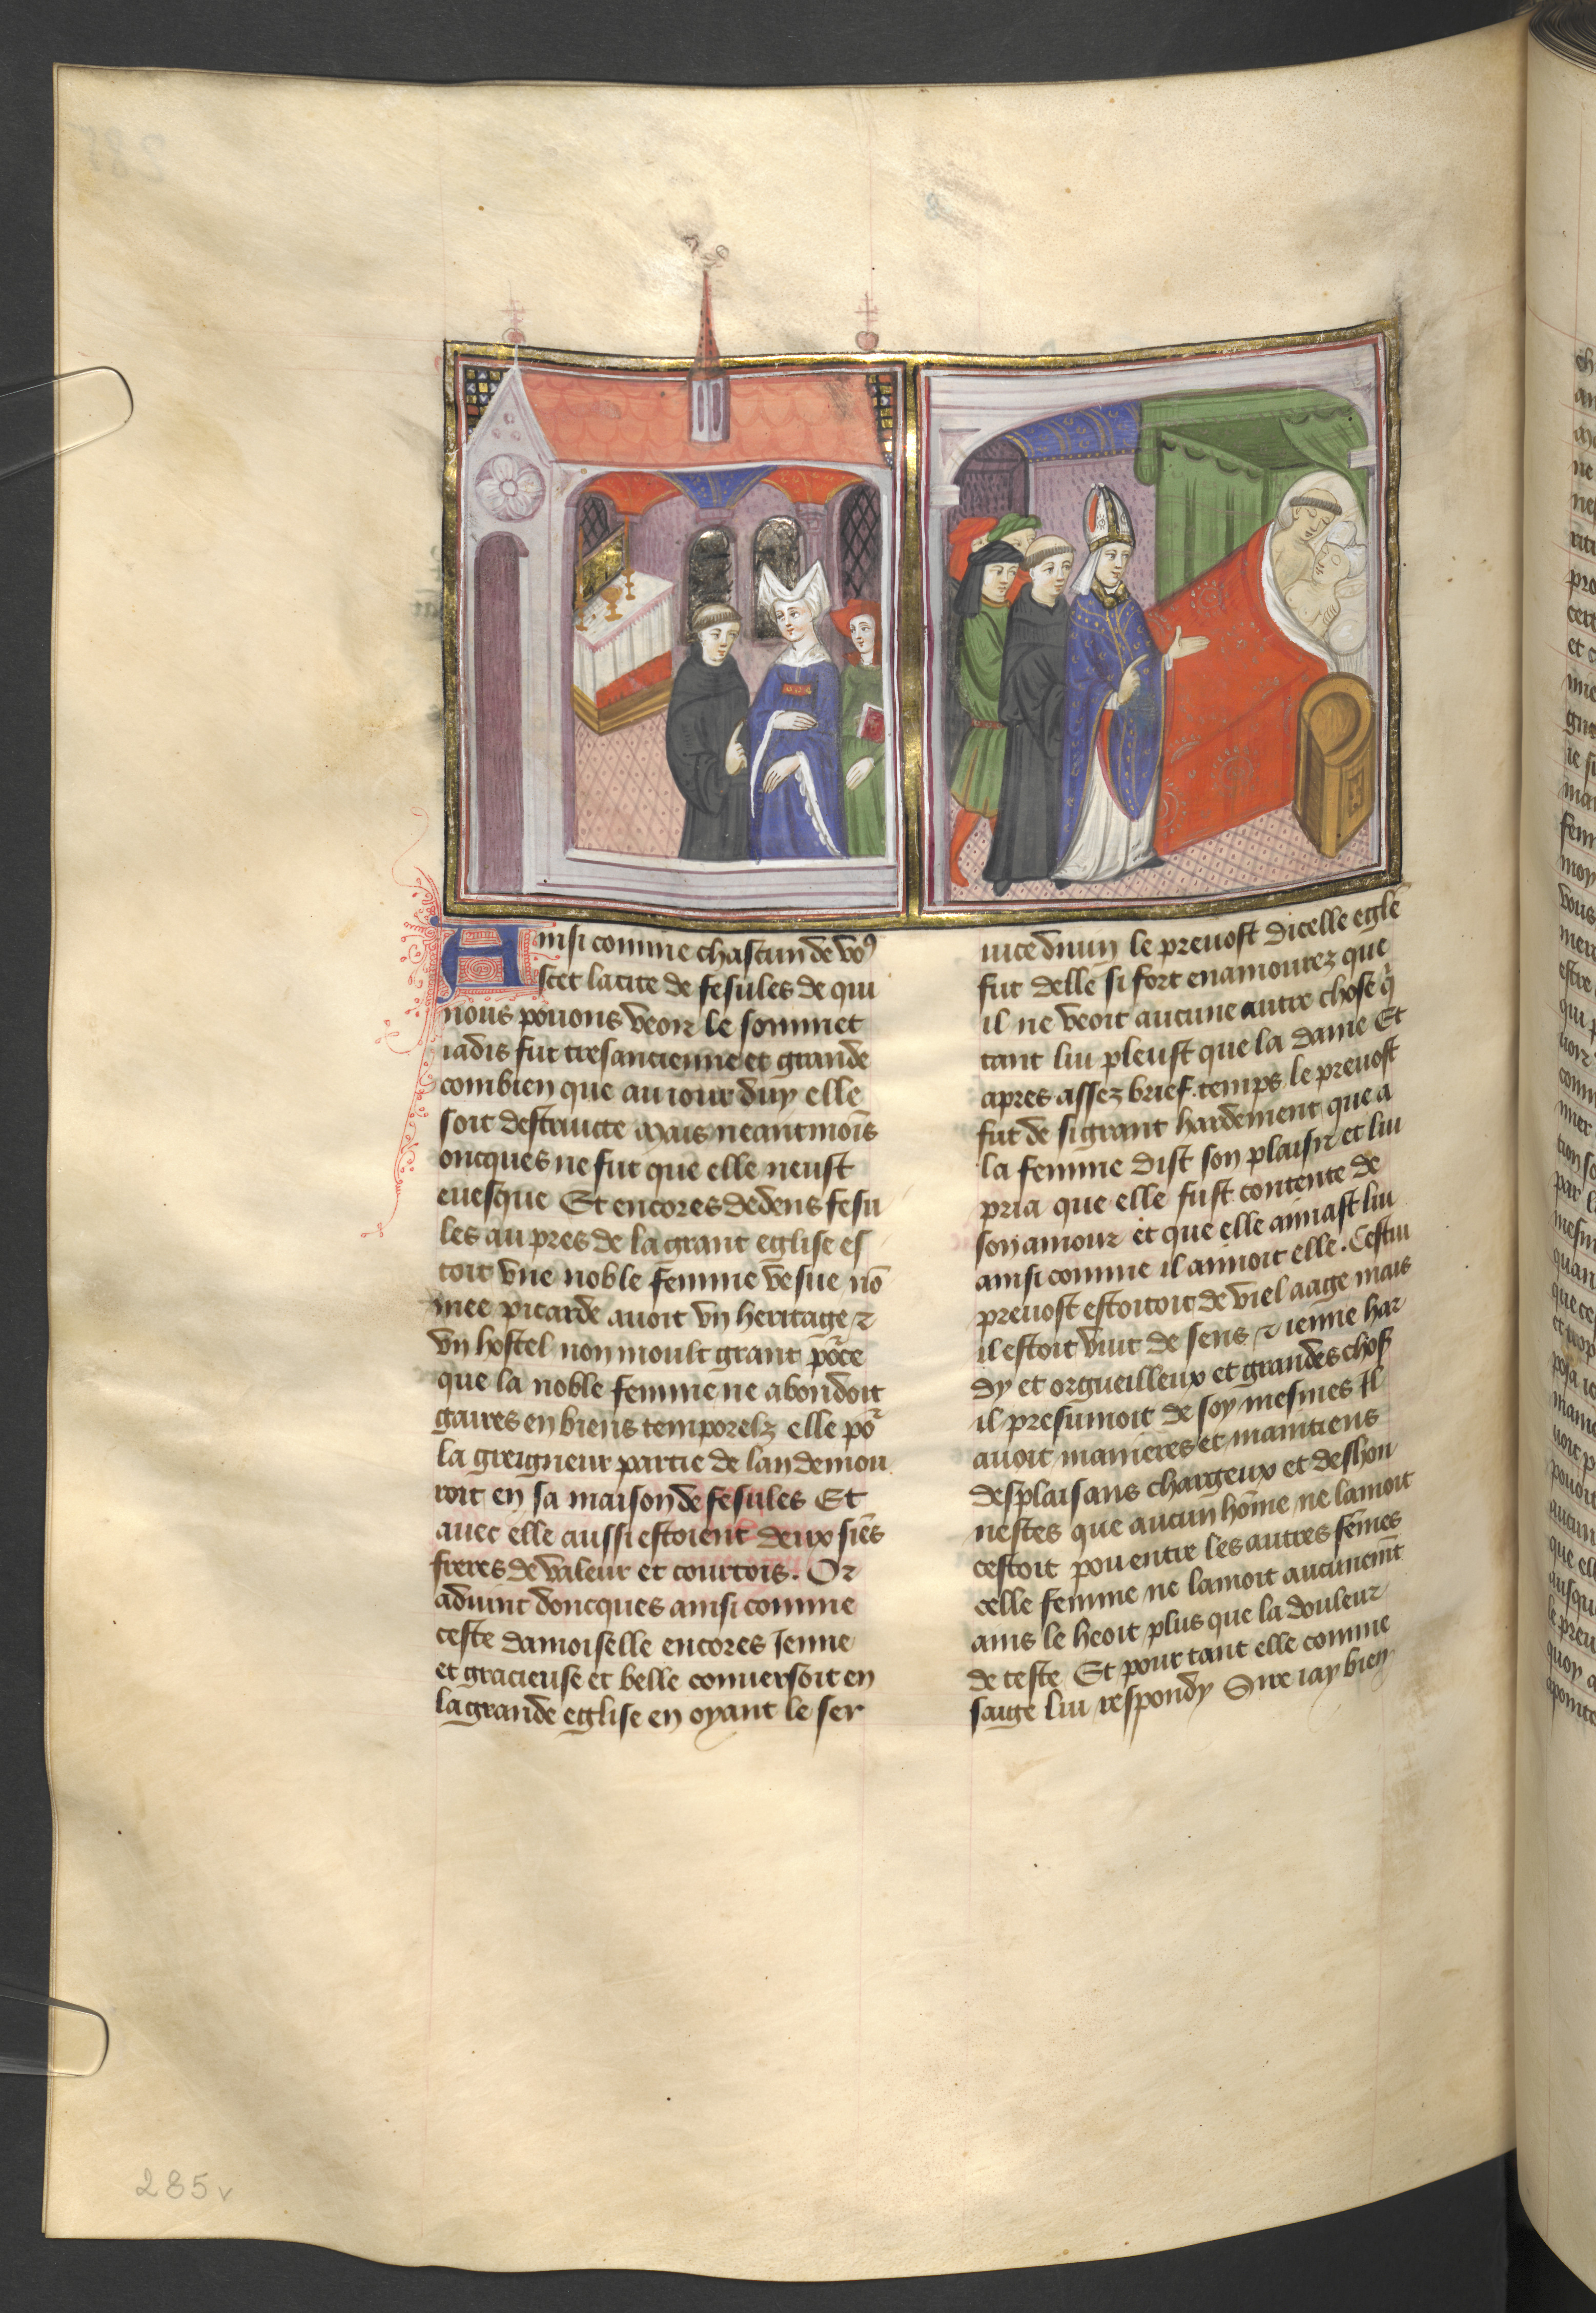 Ainsi comme chascun de vo9
scet la cite de fesules de qui
nous pouons veoir le sommet
iadis fut tresancienne et grande
combien que au iour duy elle
soit destruicte Mais neantmoīs
oncques ne fut que elle neust
euesque Et encores dedens fesu
les au pres de la grant eglise es
toit vne noble femme vesue nō
mee picarde auoit vn heritage ⁊
vn hostel non moult grant por̄ce
que la noble femme ne abondoit
gaires en biens temporelz elle por̄
la greigneur partie de lan demou
roit en sa maison de fesules Et
auec elle aussi estoient deux siēs
freres de valeur et courtois. Or
aduint doncques ainsi comme
ceste damoiselle encores Ienne
et gracieuse et belle conuersoit en
la grande eglise en oyant le ser
uice diuin le preuost dicelle eglē
fut delle si fort enamourez que
il ne veoit aucune autre chose q̄
tant lui pleust que la dame Et
apres assez brief temps le preuost
fut de si grant hardement que a
la femme dist son plaisir et lui
pria que elle fust contente de
son amour et que elle amast lui
ainsi comme il amoit elle. Cestui
preuost estoitoit de viel aage mais
il estoit vuit de sens ⁊ ienne har
dy et orgueilleux et grandes chos
il presumoit de soy mesmes Il
auoit manieres et maintiens
desplaisans chargeux et deshon
nestes que aucun hōme ne lamoit
cestoit pou entre les autres fēmes
celle femme ne lamoit aucunemt̄
ains le heoit plus que la douleur
de teste Et pour tant elle comme
saige lui respondy Sire iay bien
285v